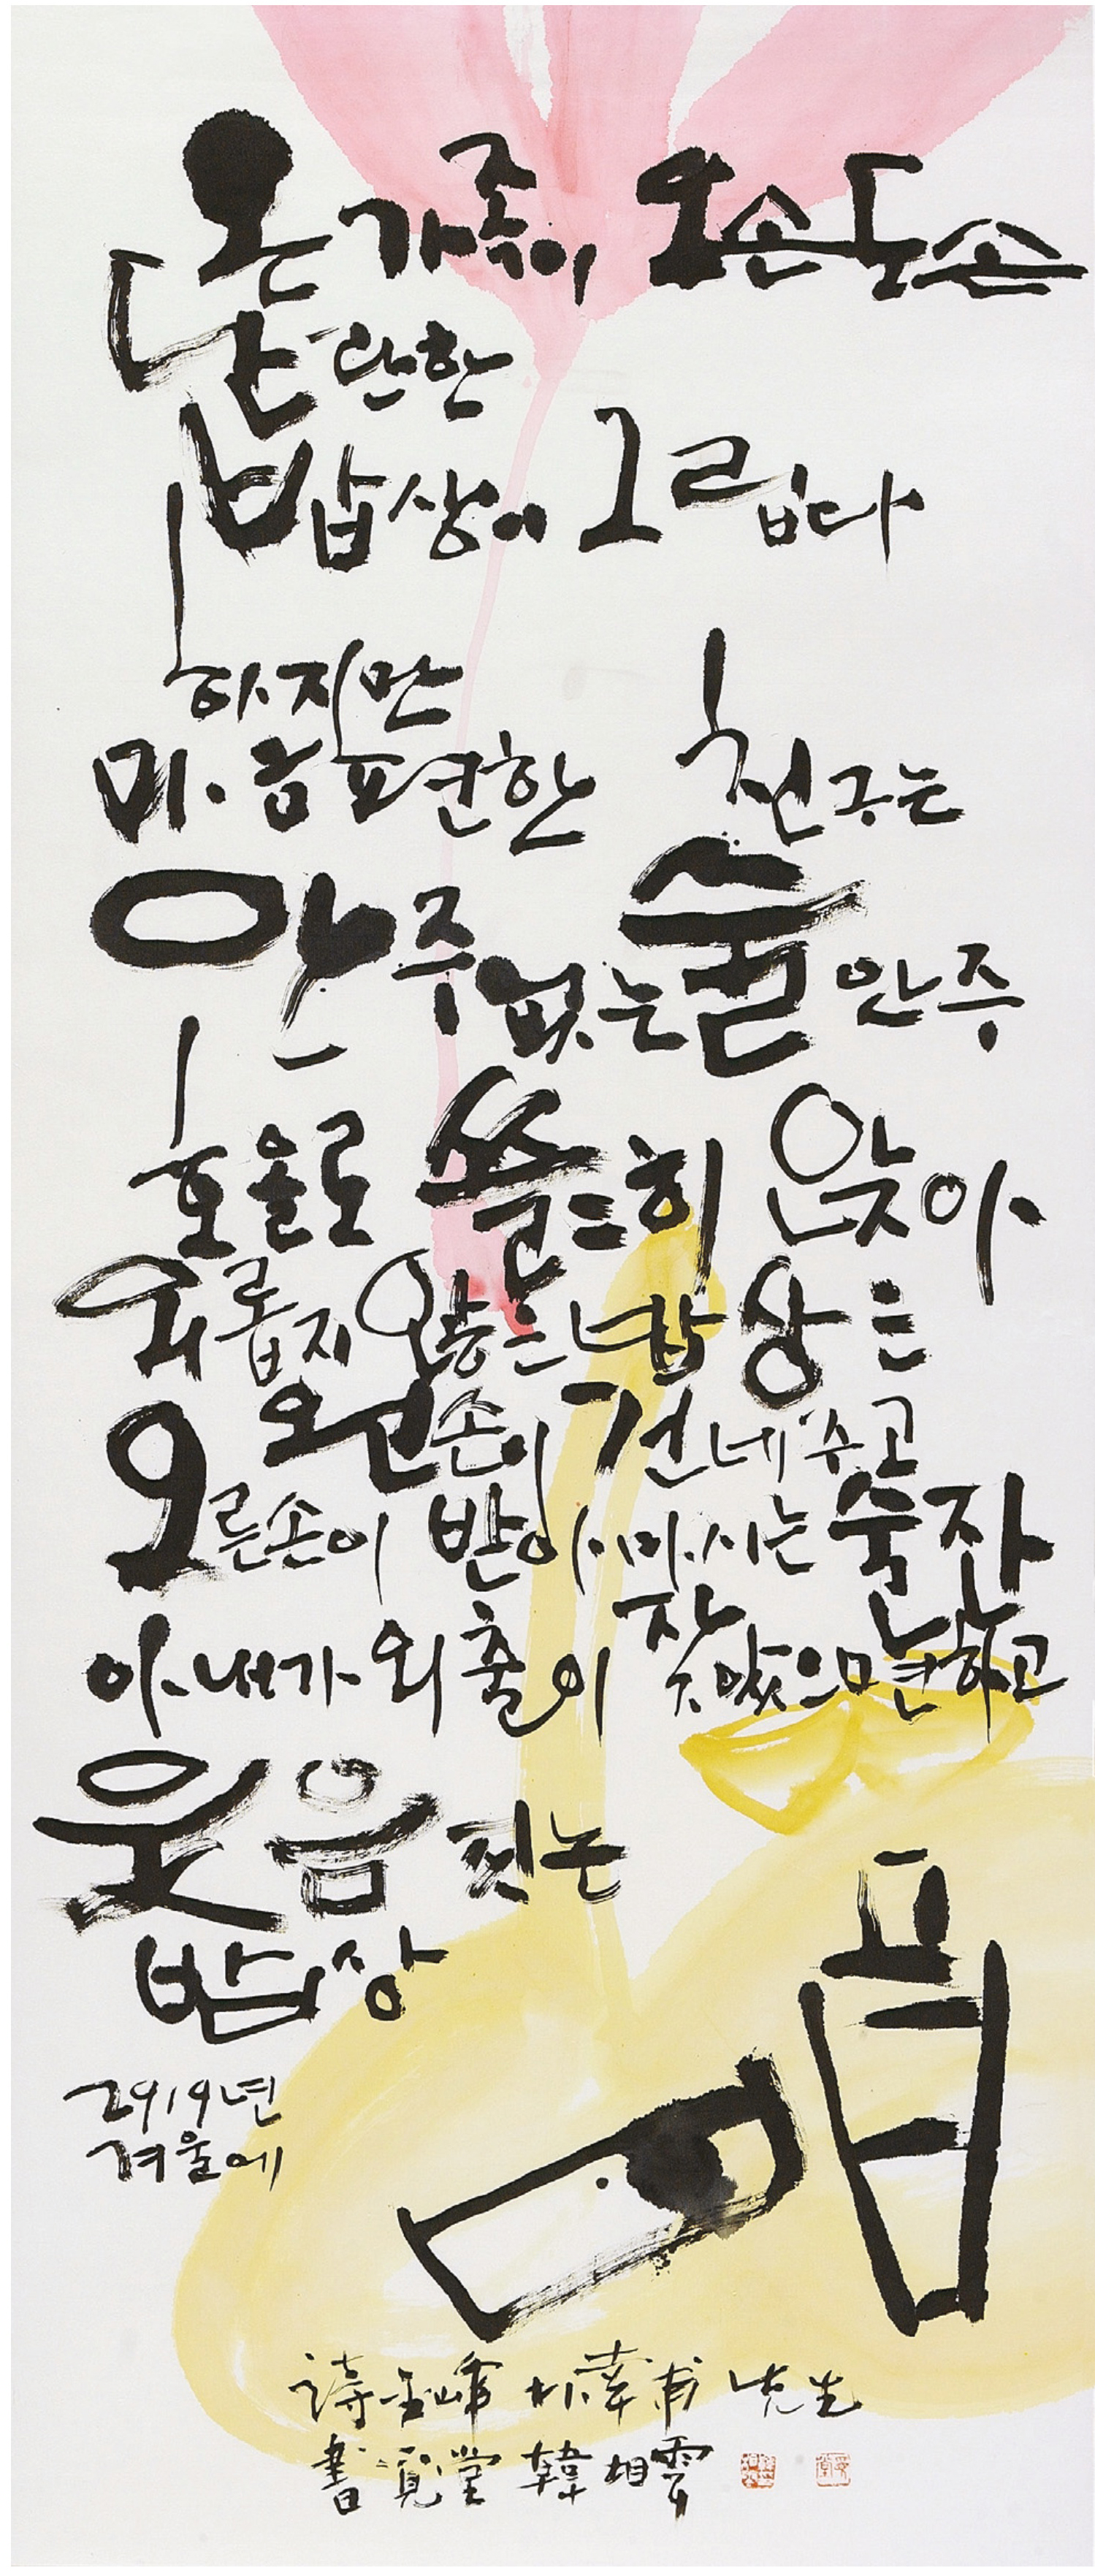 온 가족이 오손도손
단란한
밥상이 그립다
하지만
마음 편한 친구는
아주 없는 술안주
호올로 쓸쓸히 앉아
외롭지 않은 밥상은
왼손이 건네주고
오른손이 받아 마시는 술잔
아내가 외출이 잦았으면 하고
웃음 짓는
밥상
2019년
겨울에
詩 金峰 朴幸甫 先生
書 堂 韓相